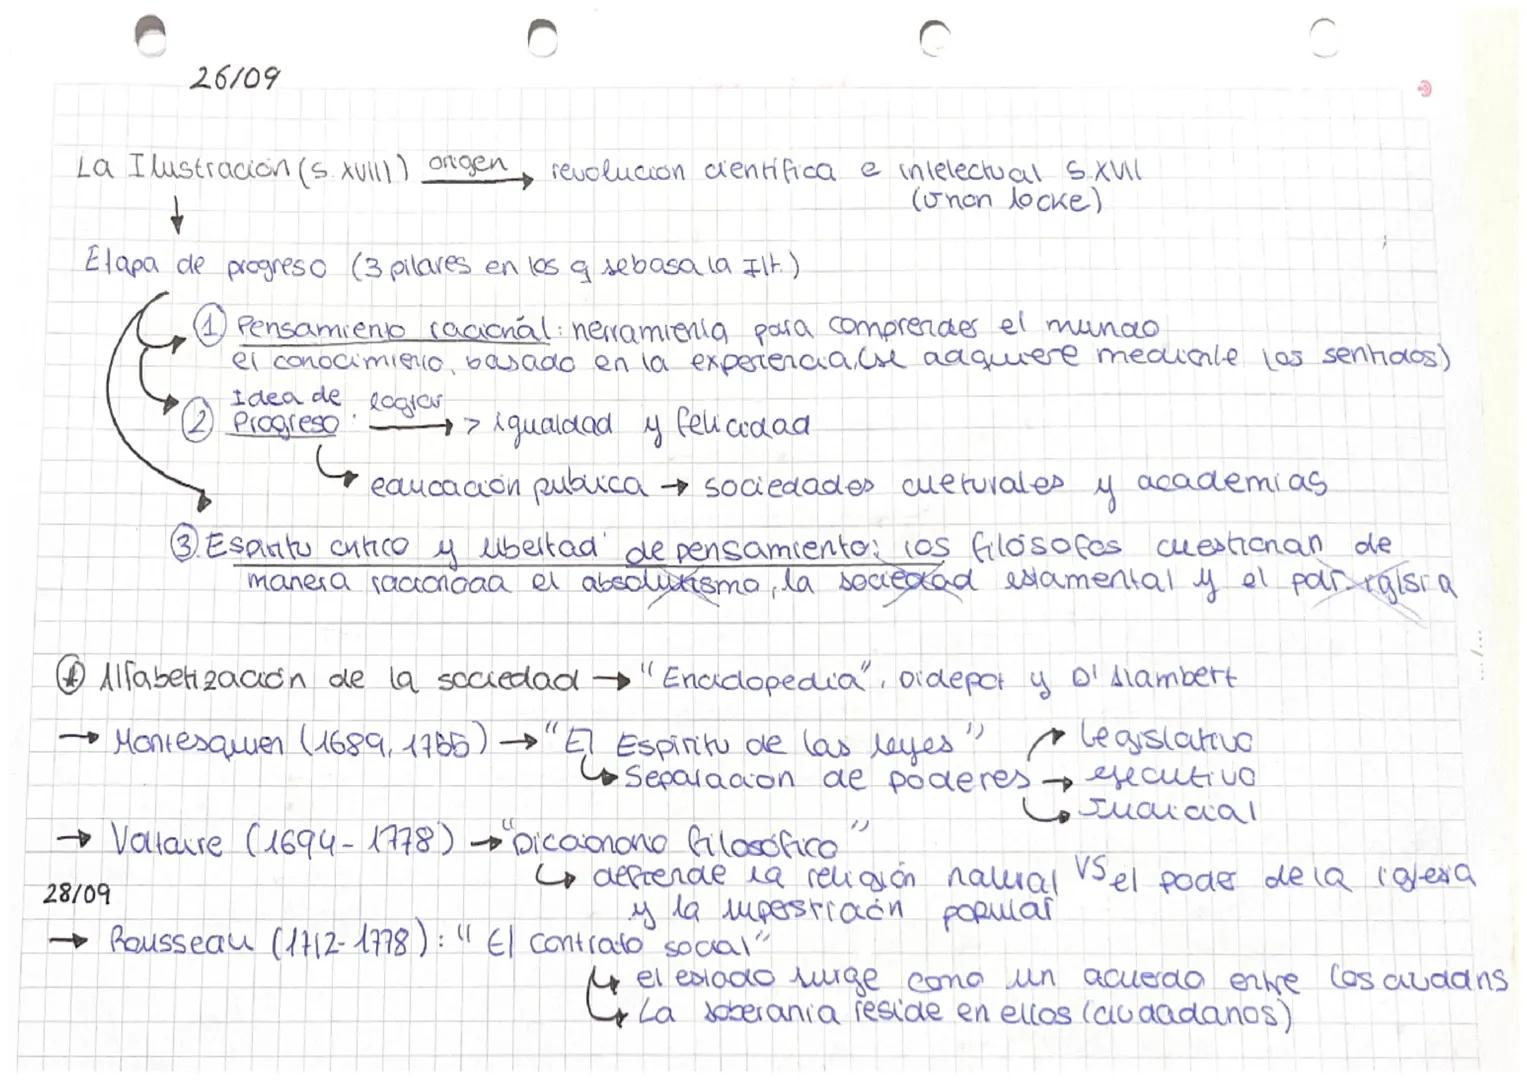 26/09
La Ilustración (s. XVIII) origen → revolución científica e intelectual s. XVII
(Jhon Locke)
Etapa de progreso (3 pilares en los q se basa la Ilt.)
① Pensamiento racional: herramienta para comprender el mundo
el conocimiento, basado en la experiencia (se adquiere mediante los sentidos)
② Idea de Progreso: lograr → > igualdad y felicidad
educación publica → sociedades culturales y academias
③. Espiritu critico y libertad de pensamiento: los filósofos cuestionan de
manera racional el absolutismo, la sociedad estamental y el iglsia
Alfabetización de la sociedad → "Enciclopedia", y D'Alambert
→ Montesquieu (1689, 1755) → "El Espíritu de las leyes" legislativo
Separación de poderes → ejecutivo
Judicial
→ Voltaire (1694-1778) → "Diccionario filosófico"
defiende la religión natural VS el poder de la iglesia
28/09
y la superstición popular
→ Rousseau (1712-1778): "El contrato social"
el estado surge como un acuerdo entre los ciudadans
La soberanía reside en ellos (ciudadanos)